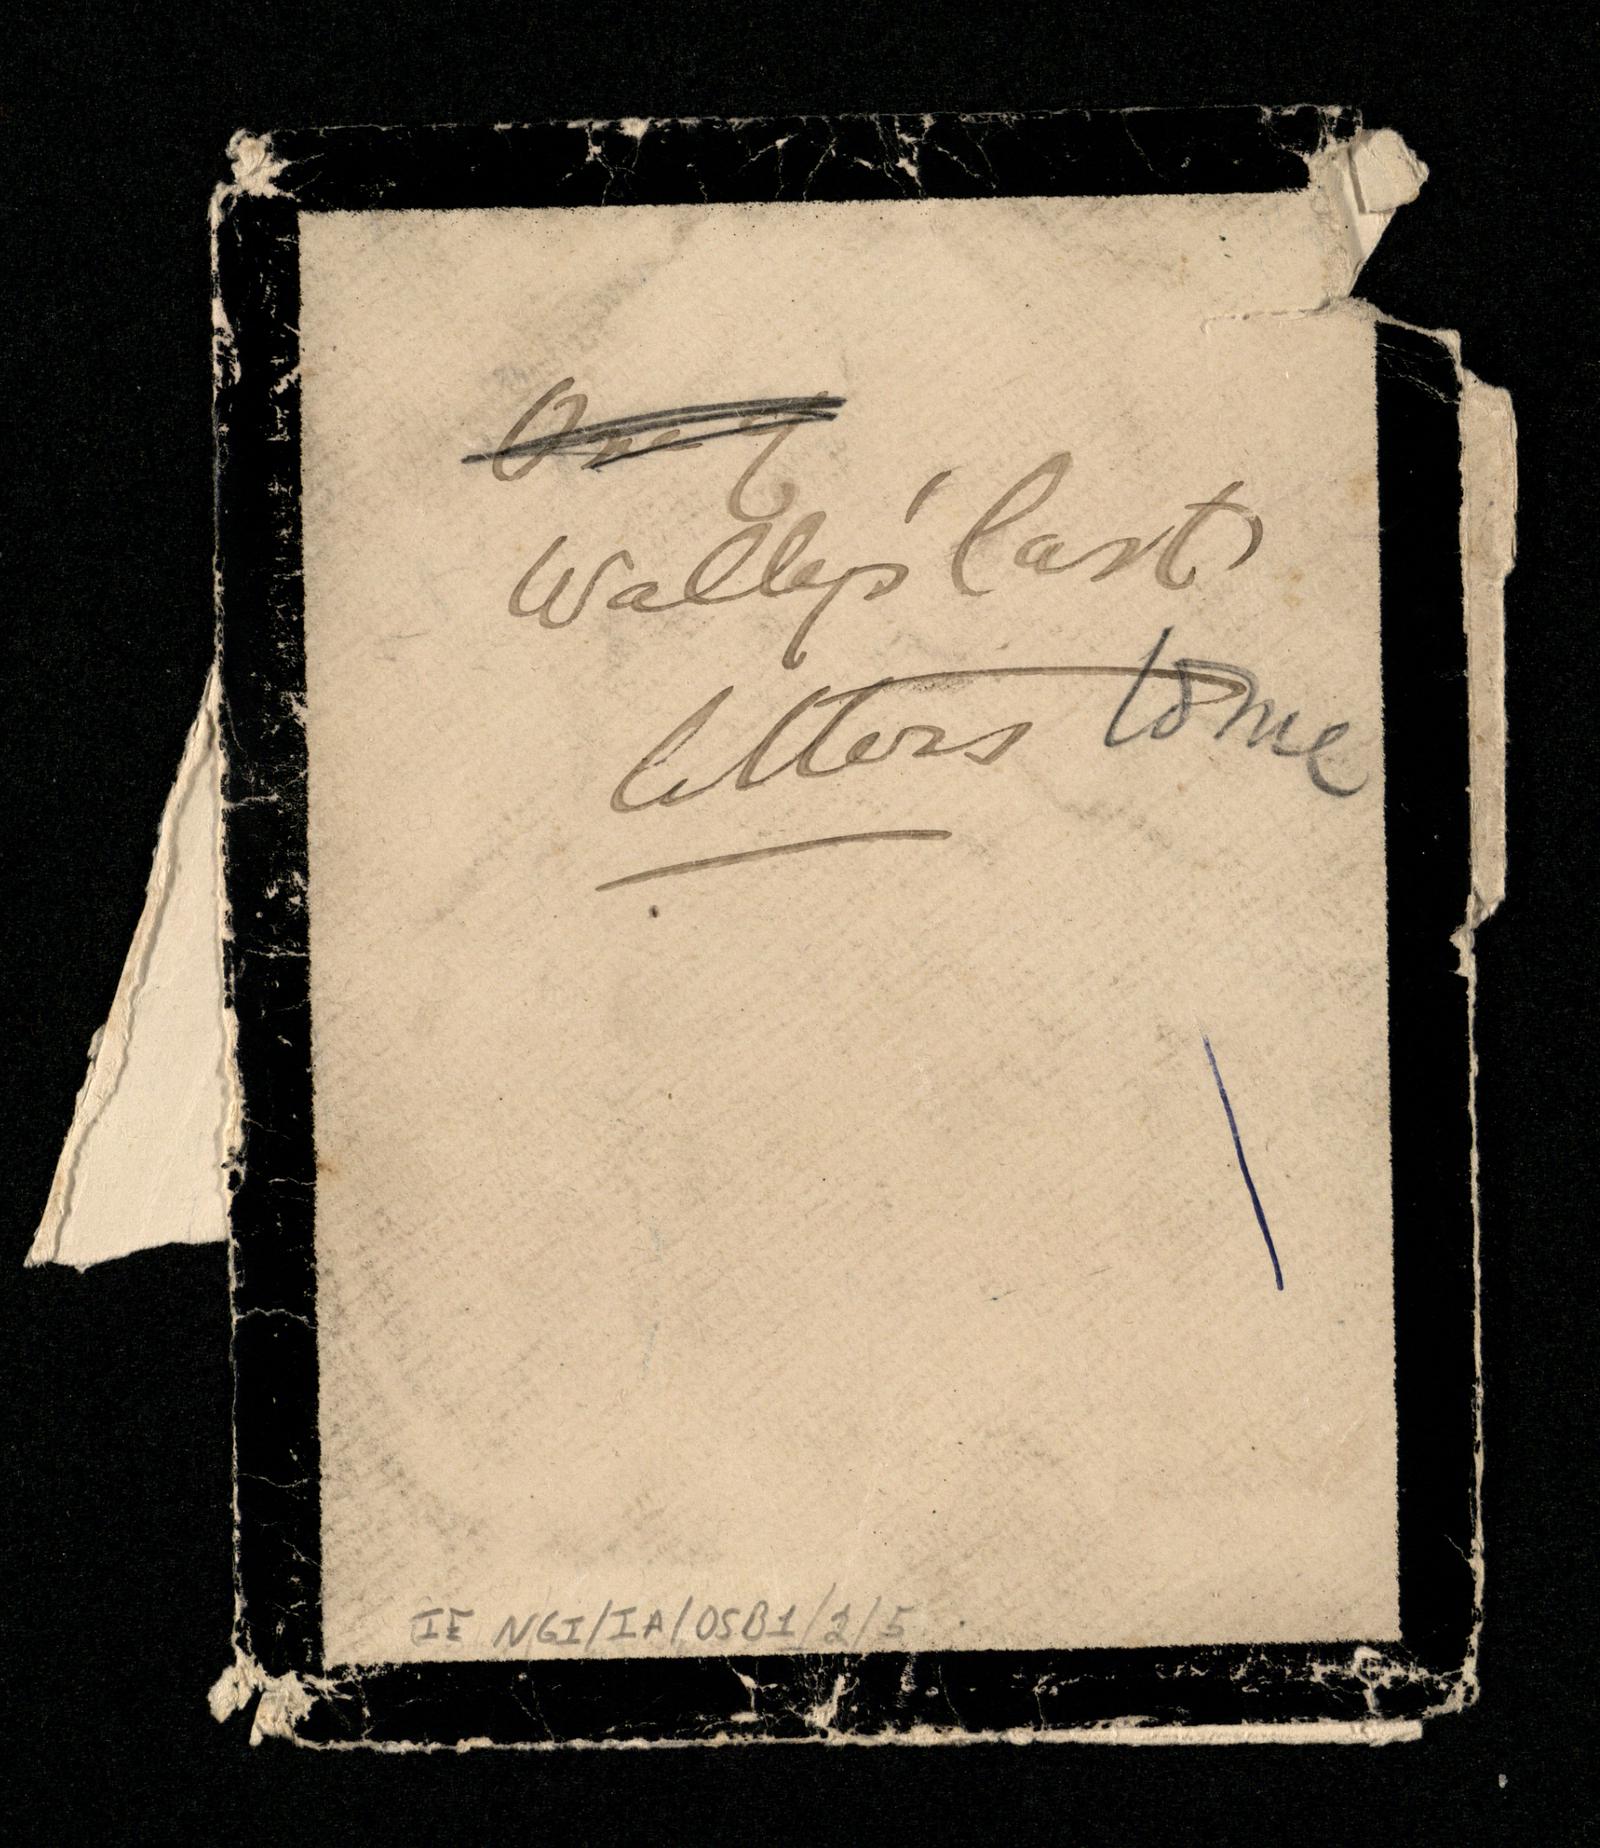 One of
Wally's last
letters to me
IE NGI/IA/OSB1/2/5